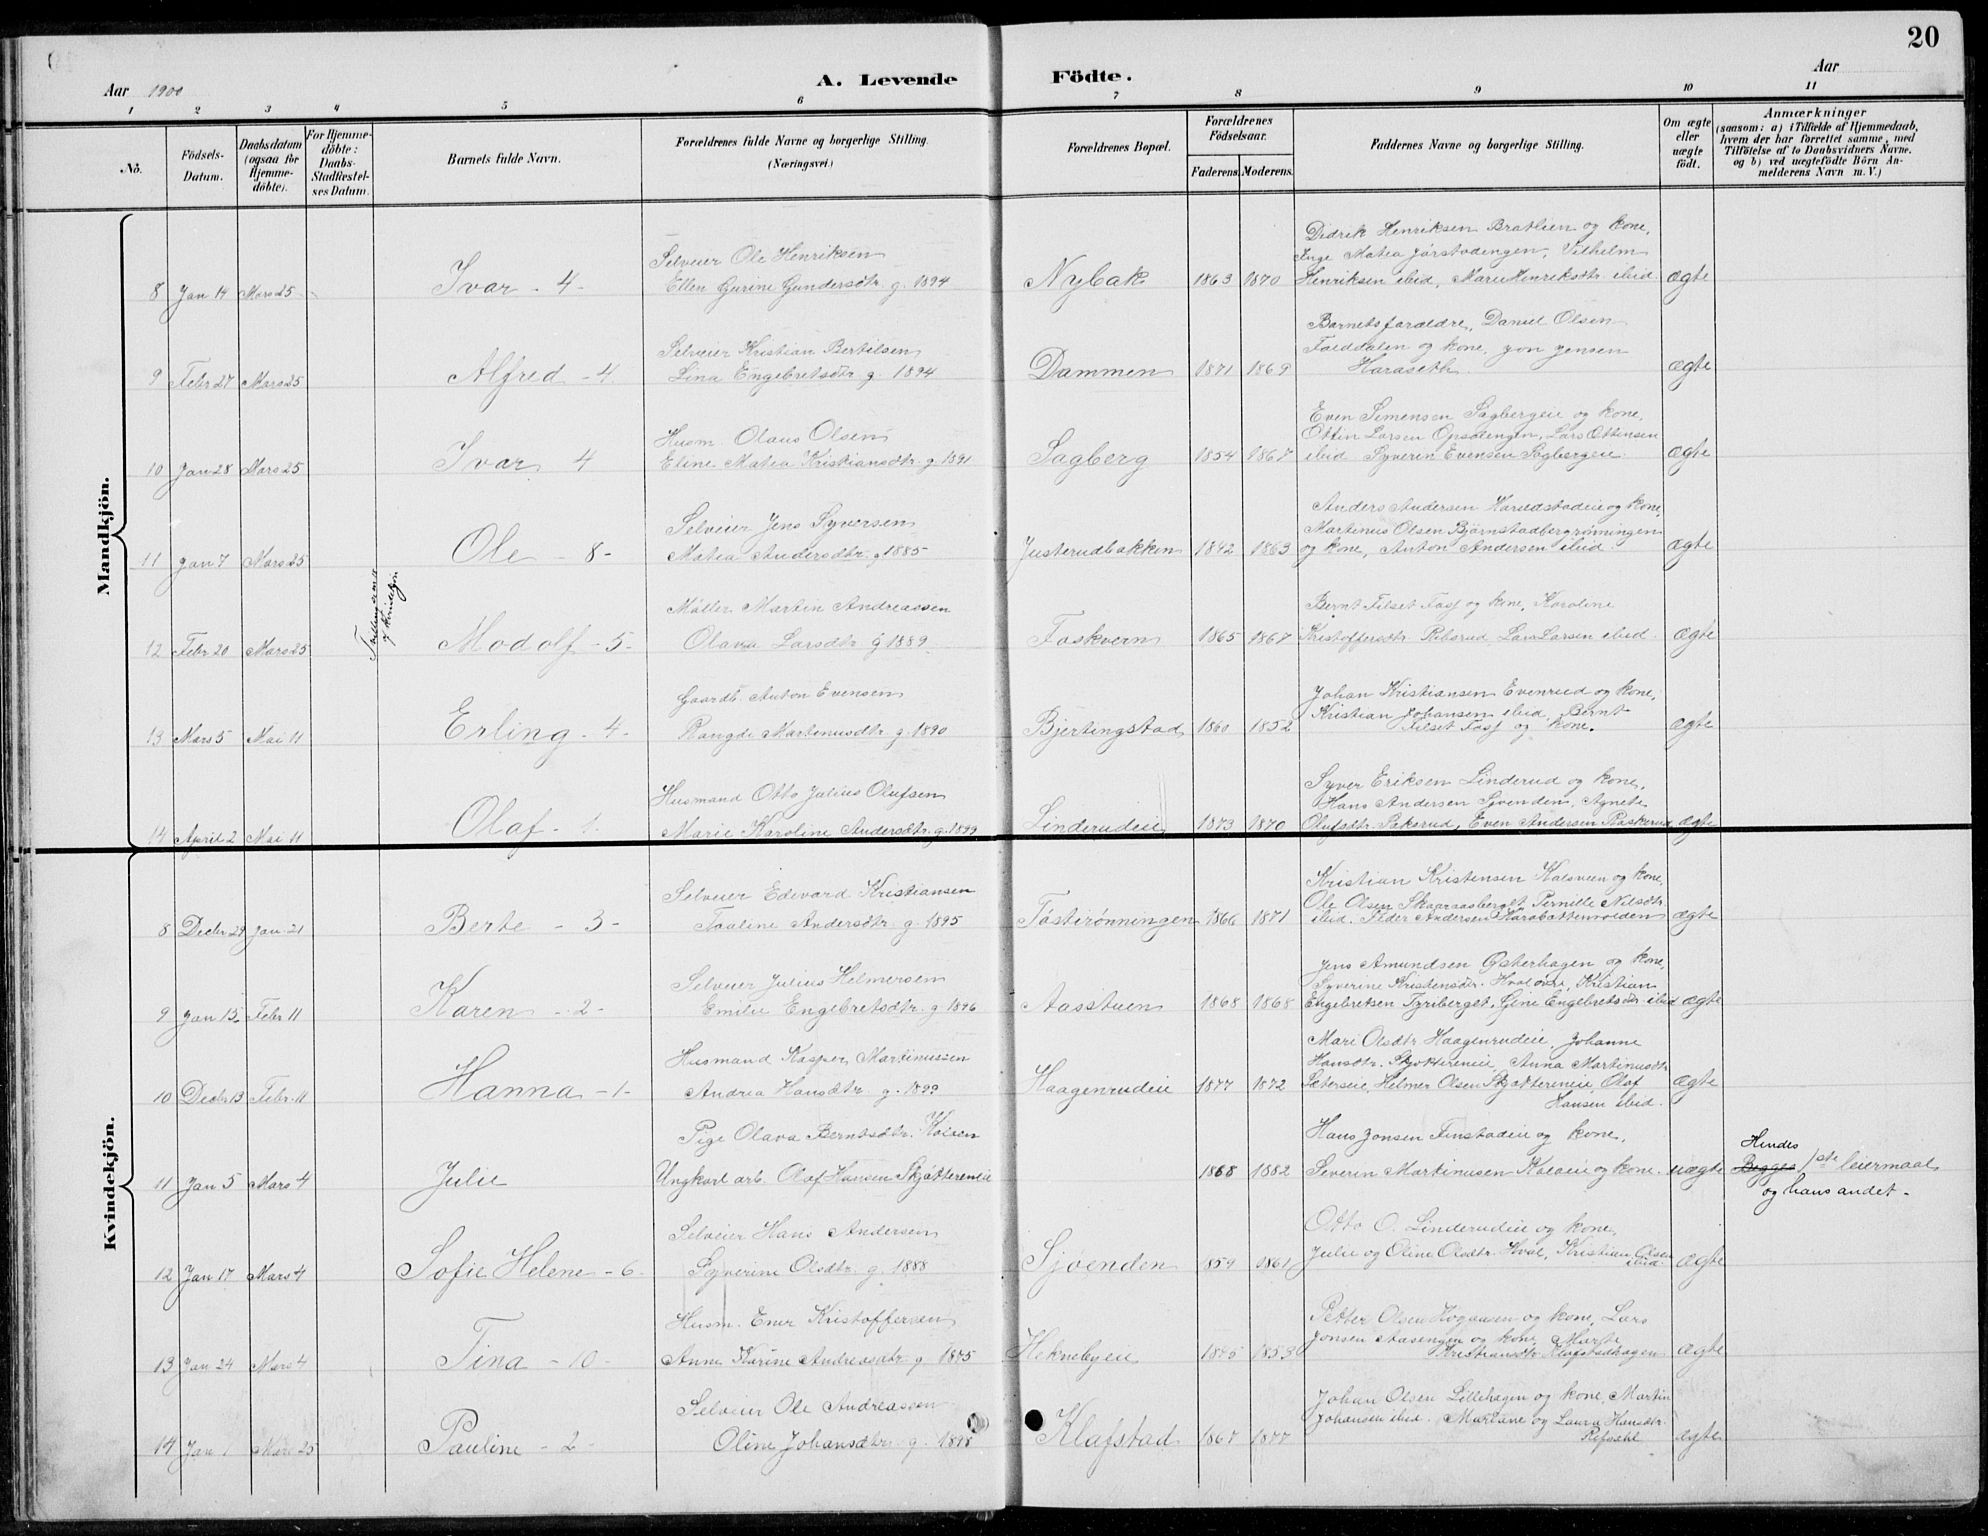 20
A. Levende Födte.
Aar 1900
Aar
1 2 3 4 5 6 7 8 9 10 11
No.
Födsels-Datum.
Daabsdatum (ogsaa for Hjemmedöbte).
For Hjemmedöbte: Daabs-Stadfæstelses Datum.
Barnets fulde Navn.
Forældrenes fulde Navne og borgerlige Stilling. (Næringsvei.)
Forældrenes Bopæl.
Forældrenes Födselsaar.
Faderens. Moderens.
Faddernes Navne og borgerlige Stilling.
Om ægte eller uægte födt.
Anmærkninger (saasom: a) i Tilfælde af Hjemmedaab, hvem der har forrettet samme, med Tilföielse af to Daabsvidners Navne. og b) ved uægtefödte Börn Anmelderens Navn m. V.)
Mandkjön.
8 Jan 14 Mars 25 Ivar - 4 -
Selveier Ole Henriksen
Ellen Gurine Gundersdtr. g. 1894
Nybak 1863 1870
Didrik Henriksen Bratlien og kone,
Inge Matea Jørstadengen, Vilhelm
Henriksen ibid, Marie Henriksdtr ibid. ægte
9 Febr 27 Mars 25 Alfred - 4
Selveier Kristian Bertilsen
Lina Engebretsdtr g. 1894
Dammen 1871 1869
Barnets forældre, Daniel Olsen
Falddalen og kone, Jon Jensen
Haraseth. ægte
10 Jan 28 Mars 25 Ivar - 4
Husm. Olaus Olsen
Eline Matea Kristiansdtr. g. 1891
Sagberg 1854 1867
Even Simensen Sagbergeie og kone,
Ottin Larsen Opsalengen, Lars Ottinsen
ibid Syverin Evensen Sagbergeie. ægte
11 Jan 7 Mars 25 Ole - 8 -
Selveier Jens Syversen
Matea Andersdtr. g 1885
Justerudbakken 1842 1863
Anders Andersen Haraldstadeie og kone,
Martinus Olsen Bjørnstadbergrønningen
og kone, Anton Andersen ibid. ægte
12 Febr 20 Mars 25 Modolf - 5 -
Møller Martin Andreassen
Olava Larsdtr. g 1889
Foskvern 1865 1867
Bernt Filset Fosj og kone, Karoline
Kristoffersdtr. Rebsrud, Lars Larsen ibid. ægte
13 Mars 5 Mai 11 Erling - 4 -
Gaardb. Anton Evensen
Rangdi Martinusdtr g. 1890
Bjertingstad 1860 1852
Johan Kristiansen Evenrud og kone,
Kristian Johansen ibid, Bernt
Filset Fosj og kone. ægte
14 April 2 Mai 11 Olaf - 1 -
Husmand Otto Julius Olufsen
Marie Karoline Andersdtr. g. 1899
Linderudeie 1873 1870
Syver Eriksen Linderud og kone,
Hans Andersen Sjvenden, Agnete
Olufsdtr. Reksrud, Even Andersen Raskerud ægte
Kvindekjön.
8 Decbr 29 Jan. 21 Berte - 3 -
Selveier Edevard Kristiansen
Taaline Andersdtr g. 1895
Tøstirønningen 1866 1871
Kristian Kristensen Kalsveen og kone,
Ole Olsen Skaaraasberget Pernille Nilsdtr
ibid. Peder Andersen ægte
9 Jan 15 Febr 11 Karen - 2 -
Selveier Julius Helmersen
Emilie Engebretsdtr. g 1896
Aasstuen 1868 1868
Jens Amundsen Østerhagen og kone,
Syverine Kristensdtr. Hval øvre, Kristian
Engebretsen Tyriberget, Gine Engebretsdtr ibid ægte
10 Decbr 13 Febr. 11 Hanna - 1 -
Husmand Kasper Martinussen
Andrea Hansdtr. g. 1899
Haagenrudeie 1877 1872
Mari Olsdtr Haagenrudeie, Johanne
Hansdtr. Skjøttereneie, Anna Martinusdtr
Sæterseie, Helmer Olsen Skjøttereneie Olaf
Hansen ibid. ægte
11 Jan 5 Mars 4 Julie
Pige Olava Berntsdtr. Kolsen
Ungkarl arb. Olaf Hansen Skjøttereneie
1868 1882
Hans Jonsen Finstadeie og kone,
Severin Martinusen Kolseie og kone. uægte
Hendes
Begges 1ste leiermaal
og hans andet.
12 Jan 17 Mars 4 Sofie Helene - 6 -
Selveier Hans Andersen
Syverine Olsdtr. g. 1888
Sjøenden 1859 1861
Otto O. Linderudeie og kone,
Julie og Oline Olsdtr. Hval, Kristian Olsen
ibid. ægte
13 Jan 24 Mars 4 Tina - 10 -
Husm. Ener Kristoffersen
Anne Karine Andreasdtr g 1875
Heknebyeie 1853
Petter Olsen Kogausen og kone, Lars
Jonsen Aasengen og kone, Marte
Kristiansdtr. Klafstadhagen ægte
14 Jan 1 Mars 25 Pauline - 2 -
Selveier Ole Andreassen
Oline Johansdtr g. 1898
Klafstad 1867 1877
Johan Olsen Lillehagen og kone, Martin
Johansen ibid. Mariane og Laura Hansdtr.
Refsahl ægte